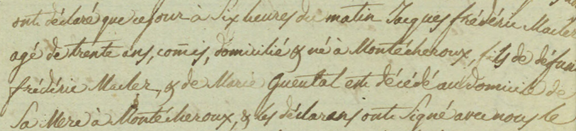 ont déclaré que ce jour à Six heures du matin Jacques frédéric Macler
agé de trente ans, com̃is, domicilié & né à Montécheroux, fils de défun
frédéric Macler, & de Marie Quental est décédé au domicile de
Sa Mere à Montécheroux, & les déclarans ont Signé avec nous le